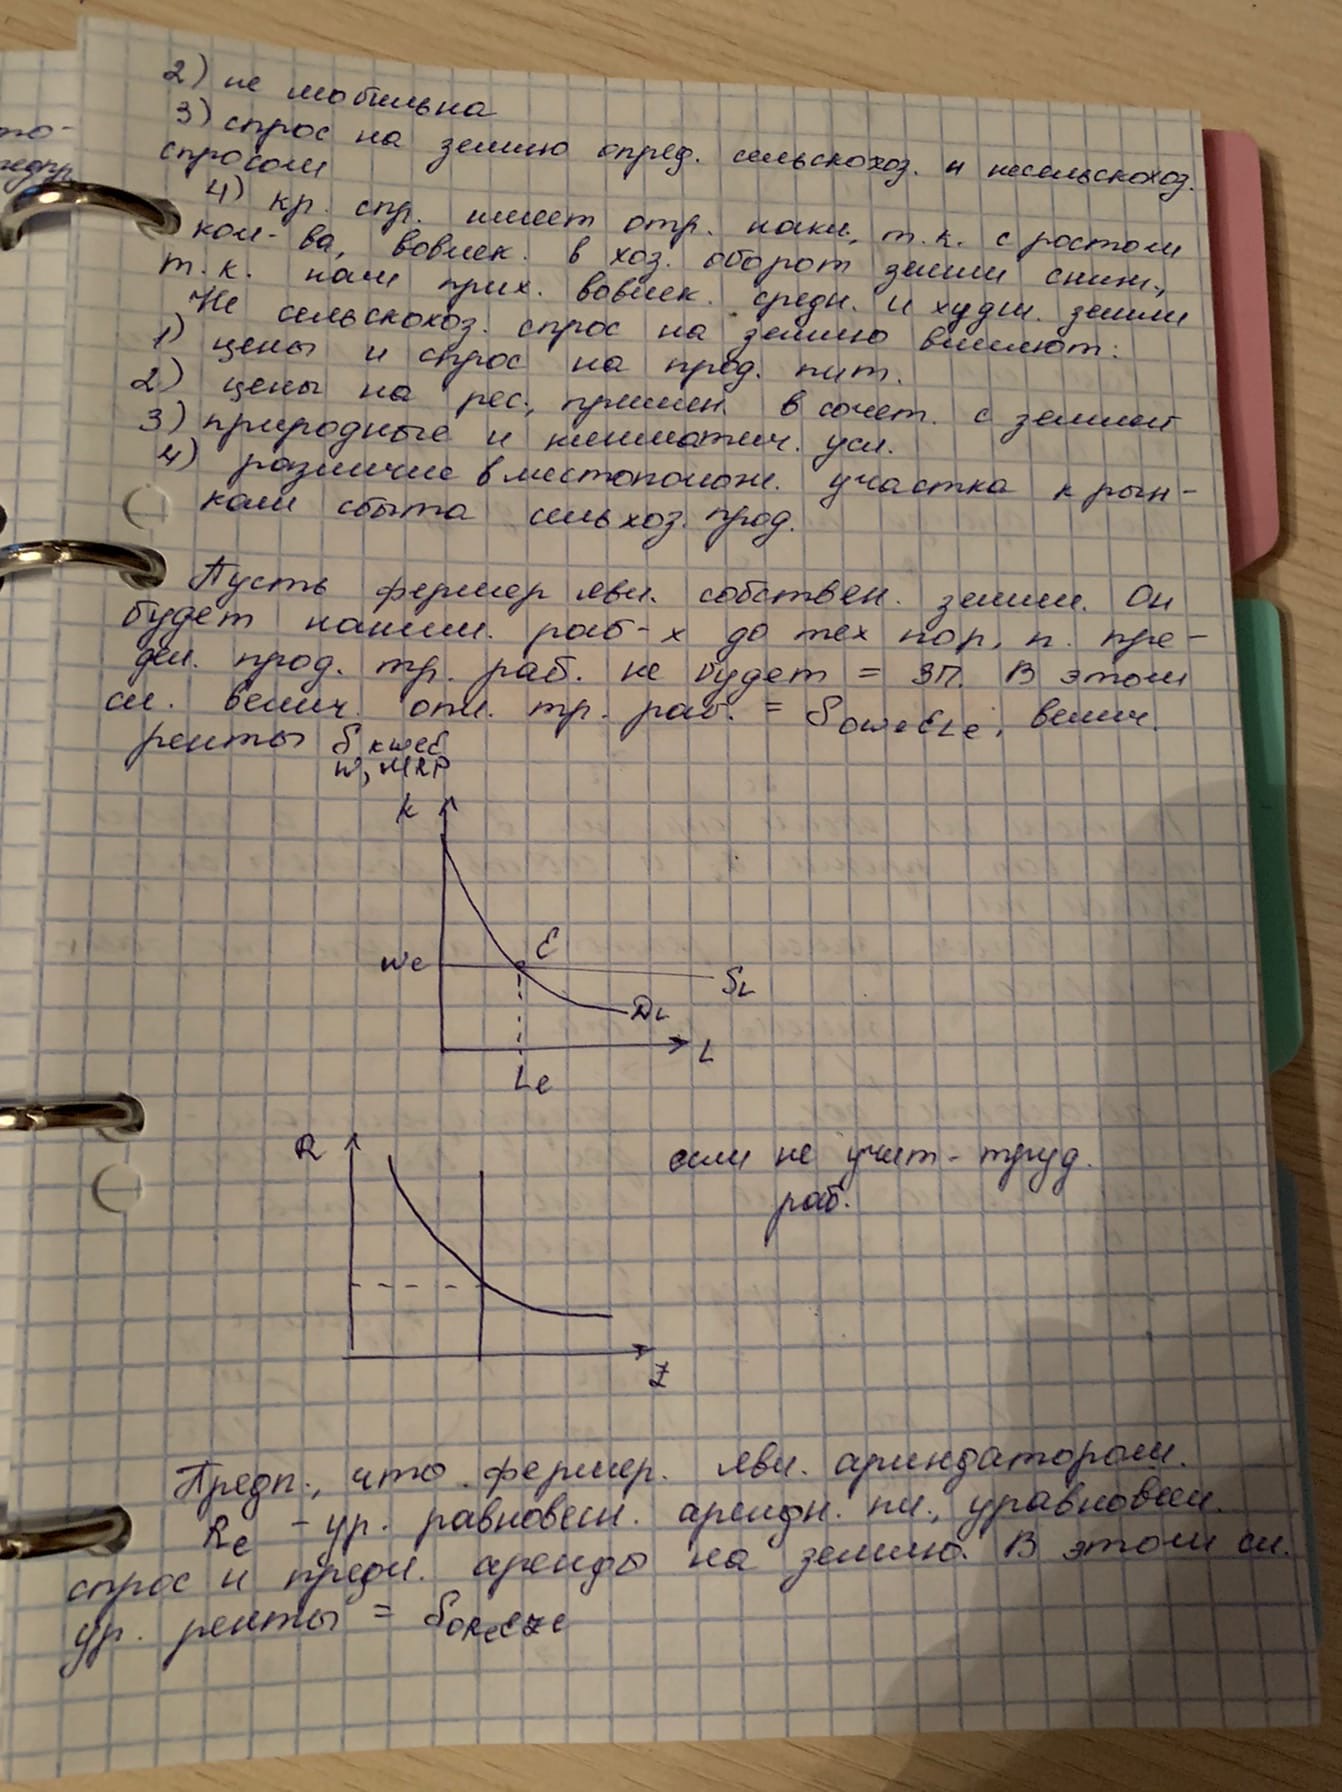 то-
2) не мобильна
3) спрос на землю опред. сельскохоз. и несельскохоз.
спросом
4) кр. спр. имеет отр. накл, т.к. с ростом
кол-ва, вовлек. в хоз. оборот земли сниж.,
т.к. нам прих. вовлек. средн. и худш. земли
Не сельскохоз. спрос на землю влияют:
1) цены и спрос на прод. пит.
2) цены на рес., примен. в сочет. с землей
3) природные и климатич. усл.
4) различие в местополож. участка к рын-
кам сбыта сельхоз. прод.
Пусть фермер явл. собствен. земли. Он
будет наним. раб-х до тех пор, п. пре-
дел. прод. тр. раб. не будет = ЗП. В этом
сл. велич. опл. тр. раб. = SOWeELe, велич.
ренты SKWeE
W, MRP
K
We
E
SL
DL
L
Le
R
если не учит- труд.
раб.
Z
Предп., что фермер. явл. ариндатором.
Re - ур. равновесн. арендн. пл., уравновеш.
спрос и предл. аренды на землю. В этом сл.
ур. ренты = SOReEZe